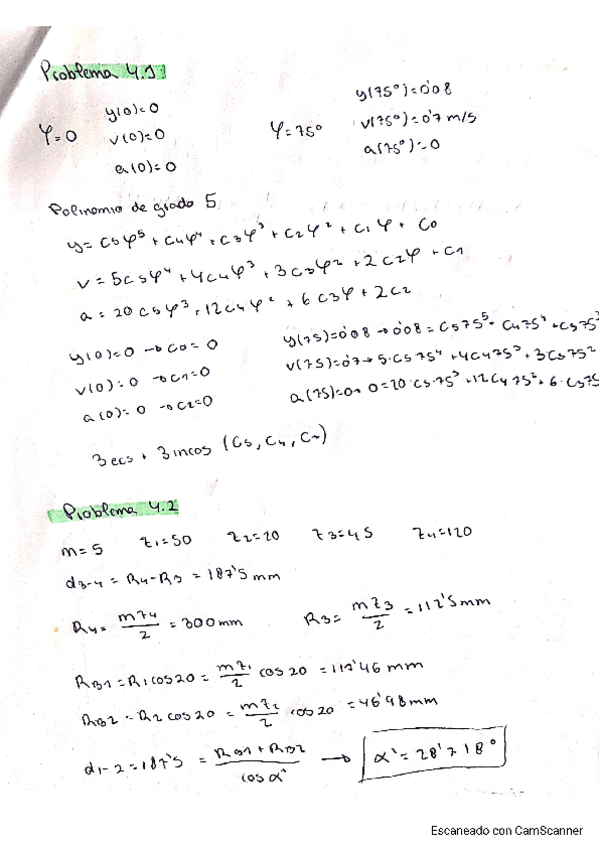 Problema 4.1:
φ=0
y(0)=0
v(0)=0
a(0)=0
φ=75°
y(75°)=0'08
v(75°)=0'7 m/s
a(75°)=0
Polinomio de grado 5
y = C5φ⁵ + C4φ⁴ + C3φ³ + C2φ² + C1φ + C0
v = 5C5φ⁴ + 4C4φ³ + 3C3φ² + 2C2φ + C1
a = 20C5φ³ + 12C4φ² + 6C3φ + 2C2
y(0)=0 → C0 = 0
v(0)=0 → C1=0
a(0)=0 → C2=0
y(75)=0'08 → 0'08 = C5 75⁵ + C4 75⁴ + C3 75³
v(75)=0'7 → 5·C5 75⁴ + 4C4 75³ + 3C3 75²
a(75)=0 → 0=20·C5·75³ + 12C4 75² + 6·C3 75
3 ecs + 3 incos (C5, C4, C3)
Problema 4.2
m=5 z1=50 z2=20 z3=45 z4=120
d3-4 = R4-R3 = 187'5 mm
R4 = mz4/2 = 300mm R3 = mz3/2 = 112'5mm
RB1 = R1cos20 = mz1/2 cos20 = 117'46 mm
RB2 = R2cos20 = mz2/2 cos20 = 46'98mm
d1-2 = 187'5 = RB1+RB2/cos α' → α' = 28'718°
Escaneado con CamScanner